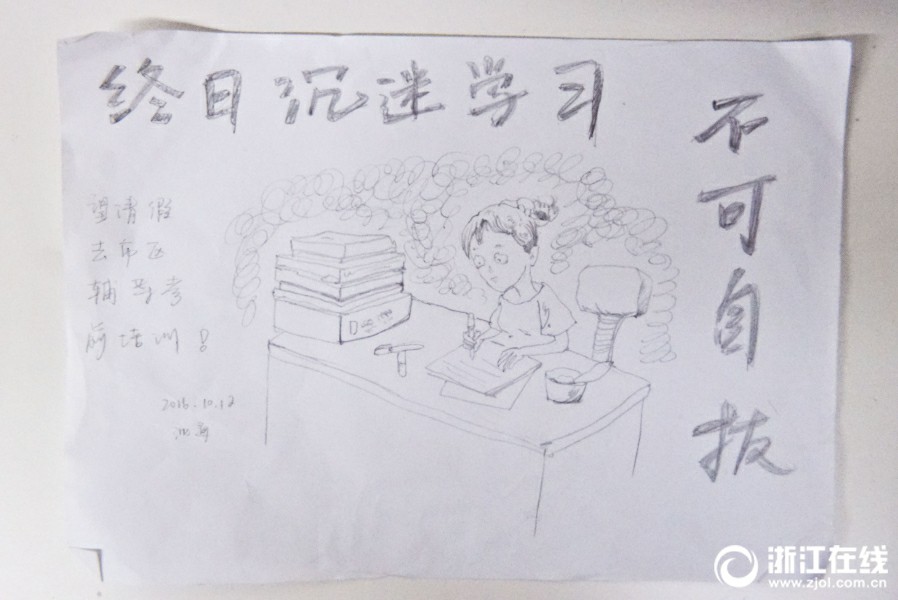 终日沉迷学习
不可自拔
望请假
去市区
辅导考
前培训！
2016.10.12
浙江在线
www.zjol.com.cn